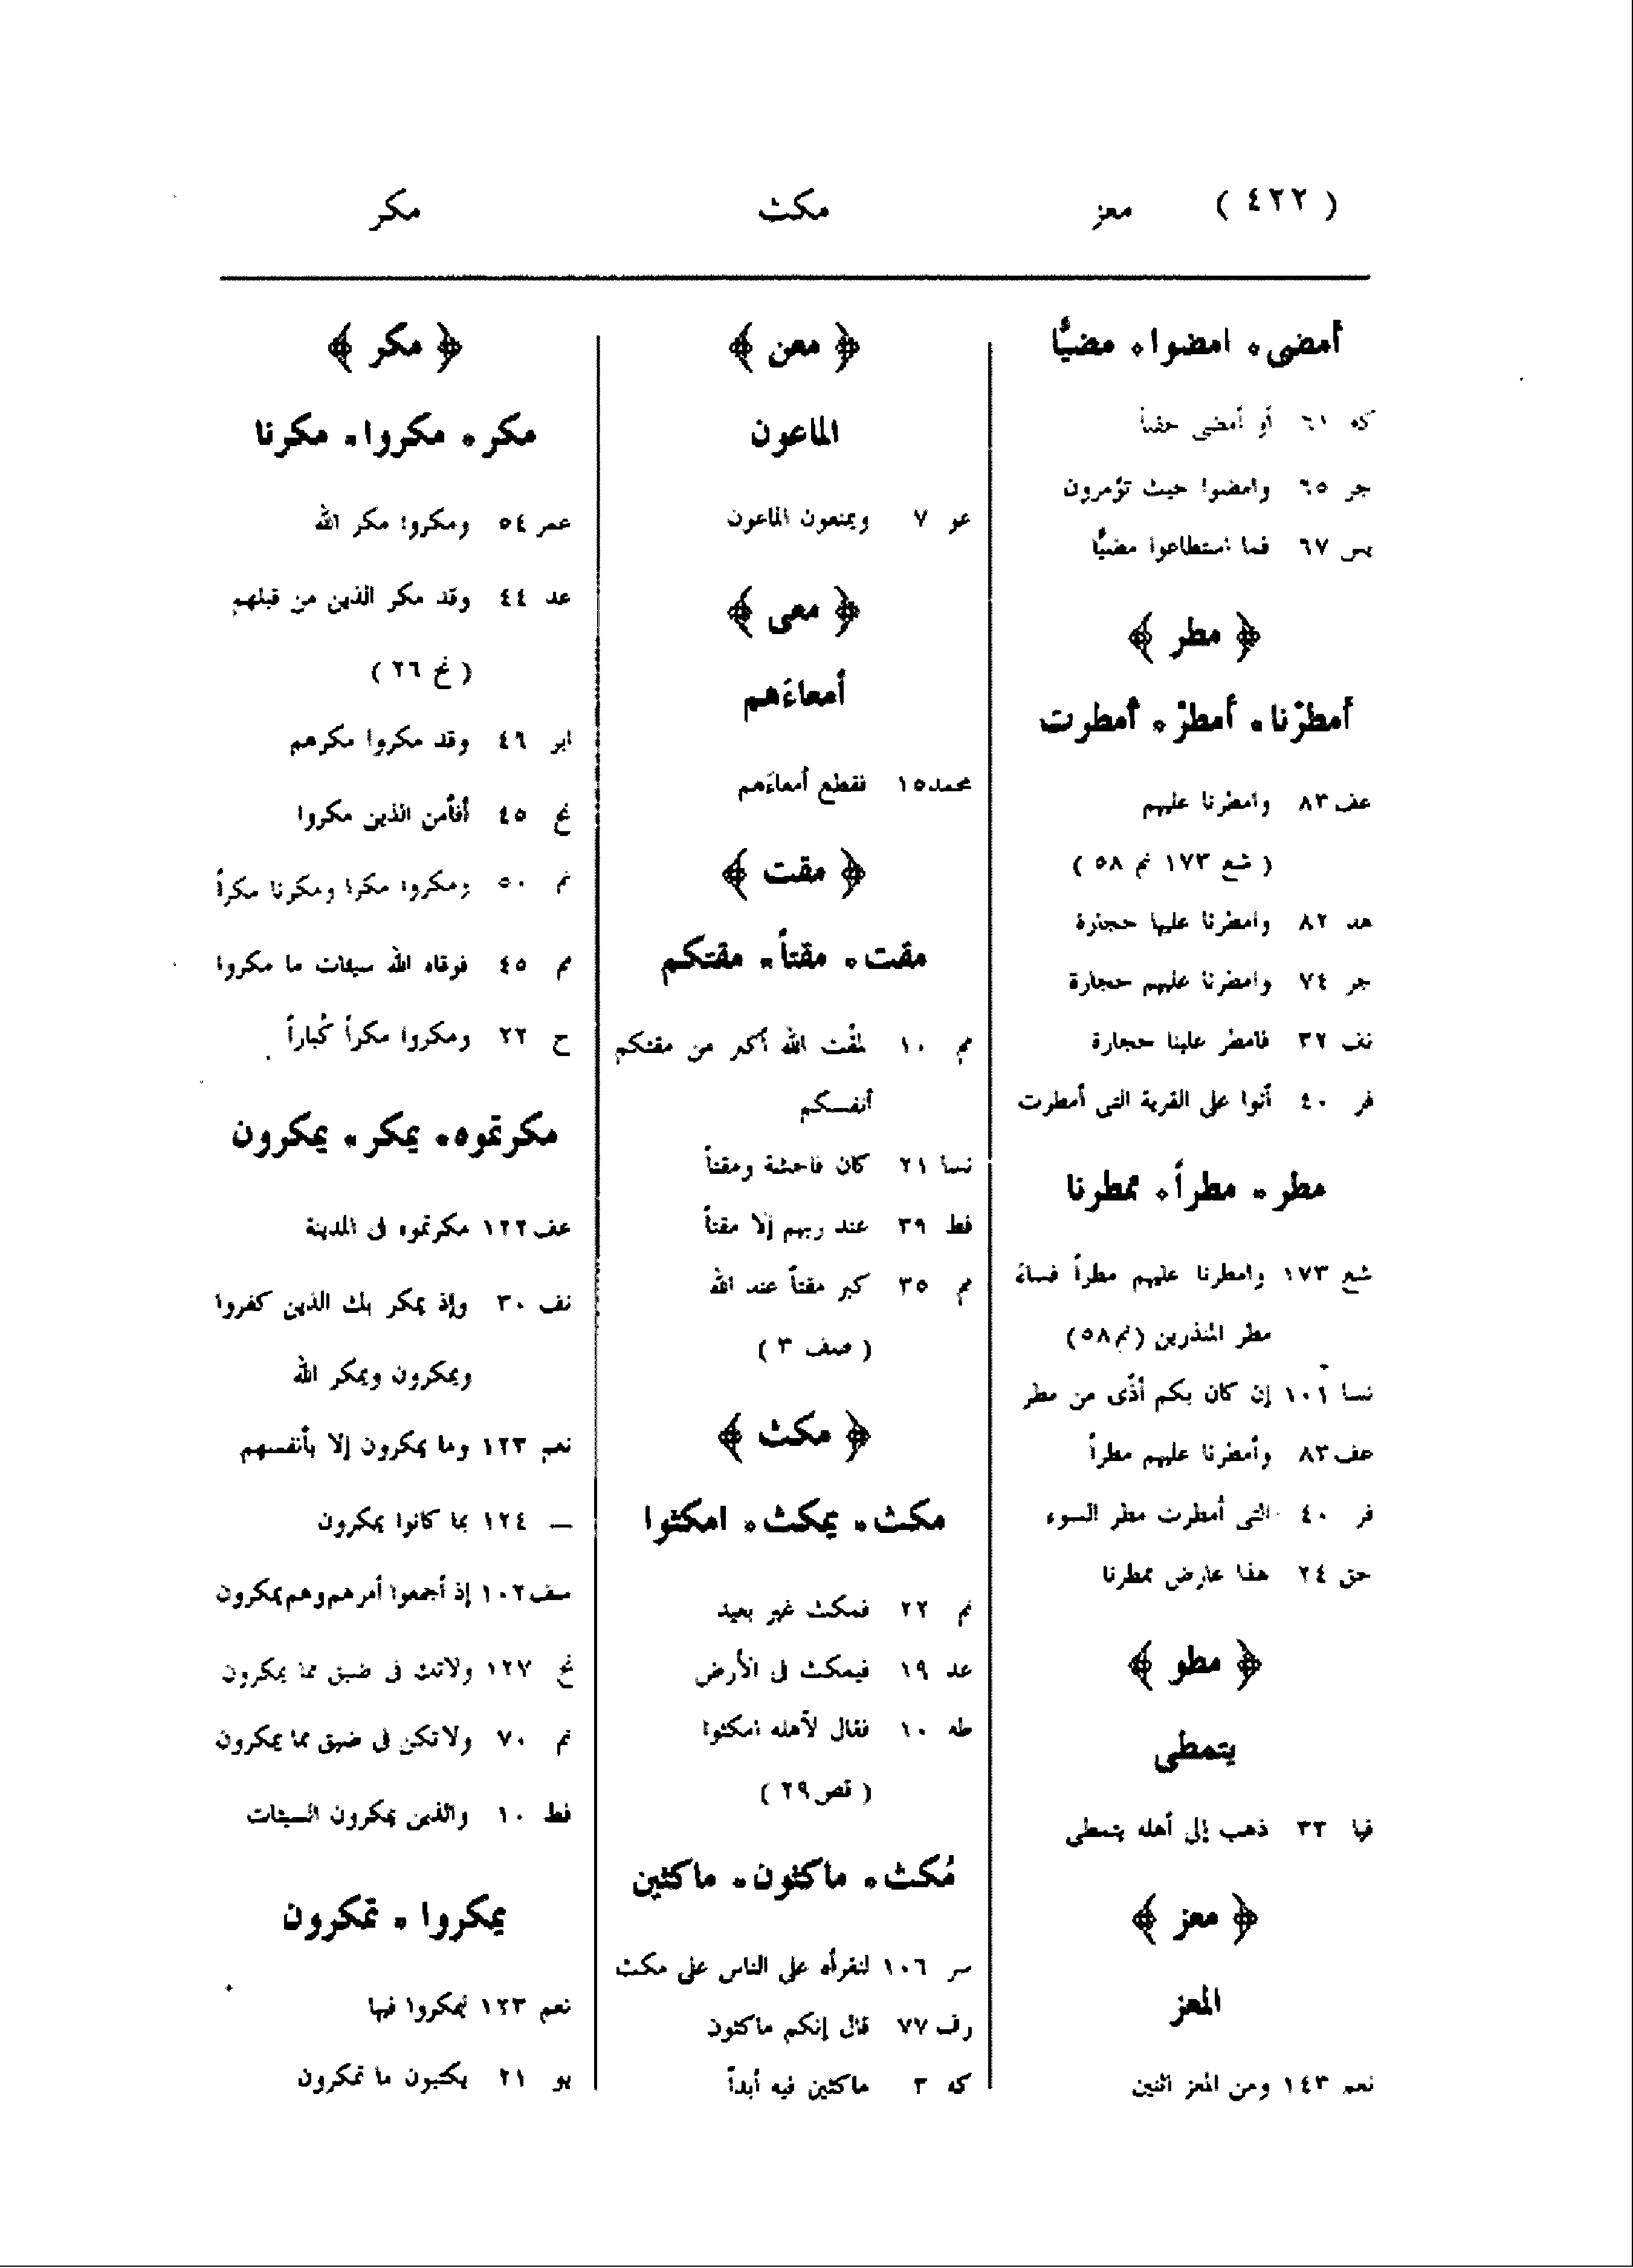 ( ٤٢٢ ) معز مكث مكر
أمضى . امضوا . مضيًّا
كه ٦١ أو أمضى حقباً
جر ٦٥ وامضوا حيث تؤمرون
يس ٦٧ فما استطاعوا مضيًّا
﴿ مطر ﴾
أمطرْنا . أمطرْ . أُمطرت
عف ٨٣ وامطرنا عليهم
( شع ١٧٣ نم ٥٨ )
هد ٨٢ وامطرنا عليها حجارة
جر ٧٤ وامطرنا عليهم حجارة
نف ٣٢ فامطر علينا حجارة
فر ٤٠ أتوا على القرية التى أمطرت
مطر . مطراً . ممطرنا
شع ١٧٣ وامطرنا عليهم مطراً فساءَ
مطر المنذرين ( نم ٥٨ )
نسا ١٠١ إن كان بكم أذًى من مطر
عف ٨٣ وأمطرنا عليهم مطراً
فر ٤٠ التى أمطرت مطر السوء
حق ٢٤ هذا عارض ممطرنا
﴿ مطو ﴾
يتمطى
قيا ٣٣ ذهب إلى أهله يتمطى
﴿ معز ﴾
المعز
نعم ١٤٣ ومن المعز اثنين
﴿ معن ﴾
الماعون
عو ٧ ويمنعون الماعون
﴿ معى ﴾
أمعاءَهم
محمد ١٥ فقطع أمعاءَهم
﴿ مقت ﴾
مقت . مقتاً . مقتكم
مم ١٠ لمقْت الله أكبر من مقتكم
أنفسكم
نسا ٢١ كان فاحشة ومقتاً
فط ٣٩ عند ربهم إلا مقتاً
مم ٣٥ كبر مقتاً عند الله
( صف ٣ )
﴿ مكث ﴾
مكث . يمكث . امكثوا
نم ٢٢ فمكث غير بعيد
عد ١٩ فيمكث فى الأرض
طه ١٠ فقال لأهله امكثوا
( قص ٢٩ )
مُكث . ماكثون . ماكثين
سر ١٠٦ لتقرأه على الناس على مكث
رف ٧٧ قال إنكم ماكثون
كه ٣ ماكثين فيه أبداً
﴿ مكر ﴾
مكر . مكروا . مكرنا
عمر ٥٤ ومكروا مكر الله
عد ٤٤ وقد مكر الذين من قبلهم
( نح ٢٦ )
ابر ٤٦ وقد مكروا مكرهم
نح ٤٥ أفأمن الذين مكروا
نم ٥٠ ومكروا مكرا ومكرنا مكراً
مم ٤٥ فوقاه الله سيئات ما مكروا
ح ٢٢ ومكروا مكراً كُباراً
مكرتموه . يمكر . يمكرون
عف ١٢٢ مكرتموه فى المدينة
نف ٣٠ وإذ يمكر بك الذين كفروا
ويمكرون ويمكر الله
نعم ١٢٣ وما يمكرون إلا بأنفسهم
— ١٢٤ بما كانوا يمكرون
سف ١٠٢ إذ أجمعوا أمرهم وهم يمكرون
نح ١٢٧ ولاتك فى ضيق مما يمكرون
نم ٧٠ ولا تكن فى ضيق مما يمكرون
فط ١٠ والذين يمكرون السيئات
يمكروا . تمكرون
نعم ١٢٣ ليمكروا فيها
يو ٢١ يكتبون ما تمكرون